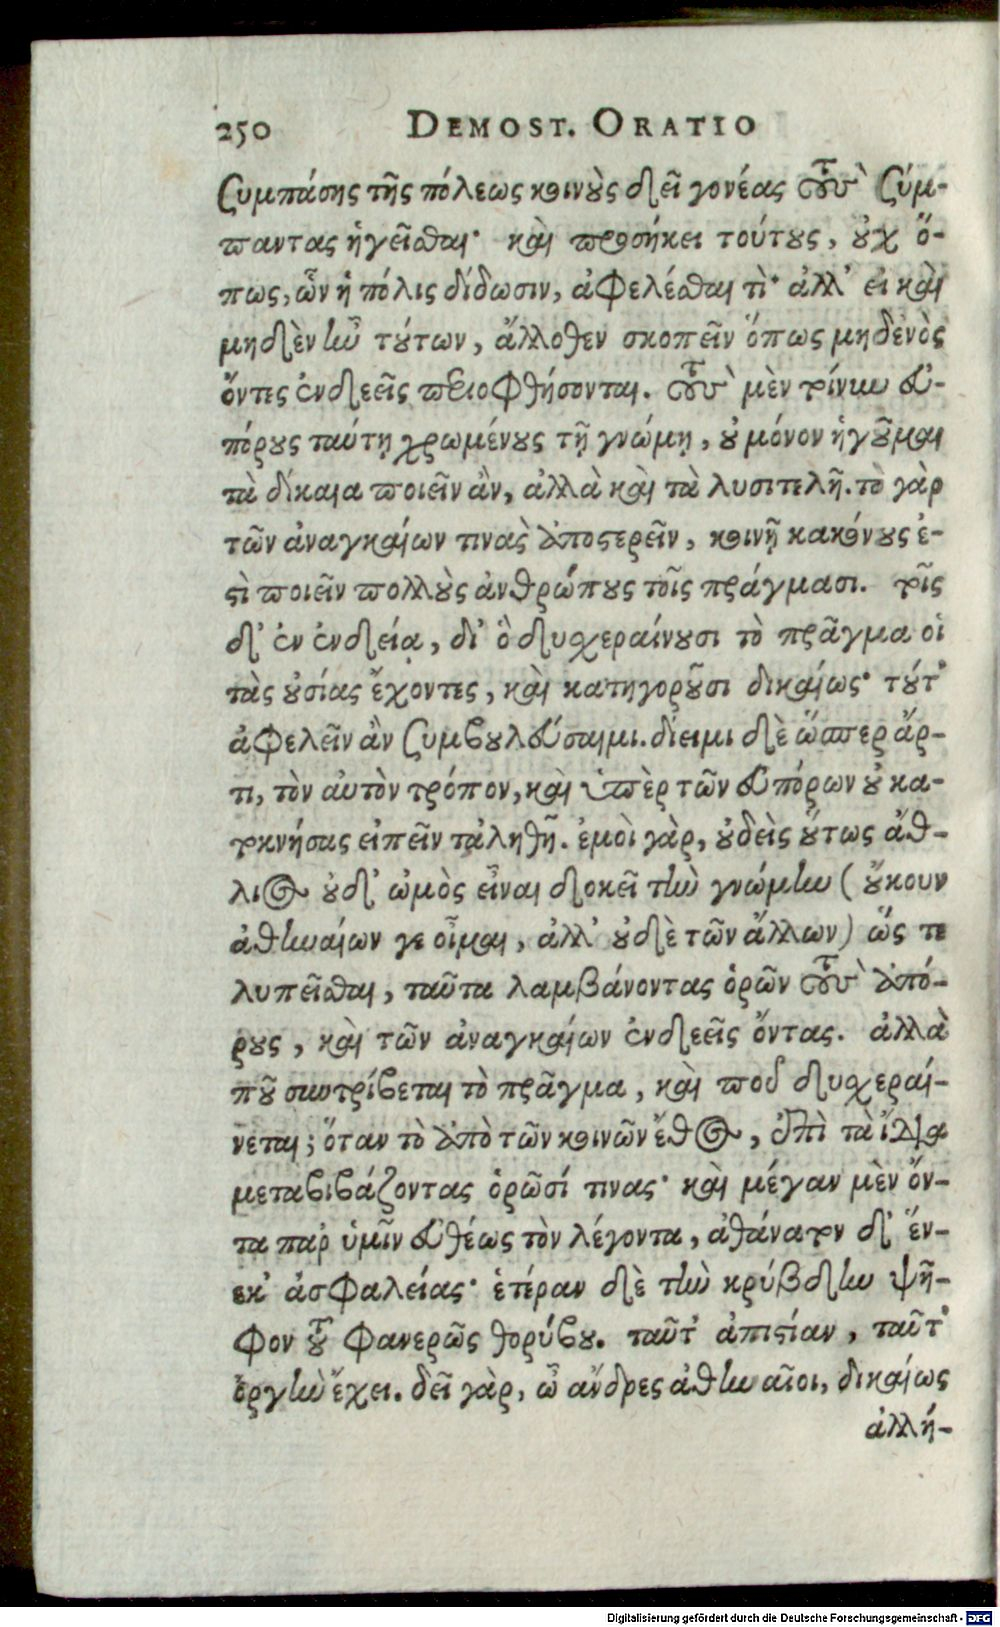 250 DEMOST. ORATIO
συμπάσης τῆς πόλεως κοινοὺς δεῖ γονέας τοὺς σύμ-
παντας ἡγεῖσθαι· καὶ προσήκει τούτους, οὐχ ὅ-
πως, ὧν ἡ πόλις δίδωσιν, ἀφελέσθαι τὶ· ἀλλ' εἰ καὶ
μηδὲν ἦν τούτων, ἄλλοθεν σκοπεῖν ὅπως μηδενὸς
ὄντες ἐνδεεῖς περιοφθήσονται. τοὺς μὲν τοίνυν εὐ-
πόρους ταύτῃ χρωμένους τῇ γνώμῃ, οὐ μόνον ἡγοῦμαι
τὰ δίκαια ποιεῖν ἂν, ἀλλὰ καὶ τὰ λυσιτελῆ. τὸ γὰρ
τῶν ἀναγκαίων τινὰς ἀποστερεῖν, κοινῇ κακόνους ἐ-
στὶ ποιεῖν πολλοὺς ἀνθρώπους τοῖς πράγμασι. τοῖς
δ' ἐν ἐνδείᾳ, δι' ὃ δυσχεραίνουσι τὸ πρᾶγμα οἱ
τὰς οὐσίας ἔχοντες, καὶ κατηγοροῦσι δικαίως· τοῦτ'
ἀφελεῖν ἂν συμβουλεύσαιμι. δίειμι δὲ ὥσπερ ἄρ-
τι, τὸν αὐτὸν τρόπον, καὶ ὑπὲρ τῶν εὐπόρων οὐ κα-
τοκνήσας εἰπεῖν τἀληθῆ. ἐμοὶ γὰρ, οὐδεὶς οὕτως ἄθ-
λιος οὐδ' ὠμὸς εἶναι δοκεῖ τὴν γνώμην (οὔκουν
ἀθηναίων γε οἶμαι, ἀλλ' οὐδὲ τῶν ἄλλων) ὥς τε
λυπεῖσθαι, ταῦτα λαμβάνοντας ὁρῶν τοὺς ἀπό-
ρους, καὶ τῶν ἀναγκαίων ἐνδεεῖς ὄντας. ἀλλὰ
ποῦ συντρίβεται τὸ πρᾶγμα, καὶ ποῦ δυσχεραί-
νεται; ὅταν τὸ ἀπὸ τῶν κοινῶν ἔθος, ἐπὶ τὰ ἴδια
μεταβιβάζοντας ὁρῶσί τινας· καὶ μέγαν μὲν ὄν-
τα παρ' ὑμῖν εὐθέως τὸν λέγοντα, ἀθάνατον δ' ἕν-
εκ' ἀσφαλείας· ἑτέραν δὲ τὴν κρύβδην ψῆ-
φον τοῦ φανερῶς θορύβου. ταῦτ' ἀπιστίαν, ταῦτ'
ὀργὴν ἔχει. δεῖ γὰρ, ὦ ἄνδρες ἀθηναῖοι, δικαίως
ἀλλή-
Digitalisierung gefördert durch die Deutsche Forschungsgemeinschaft - DFG